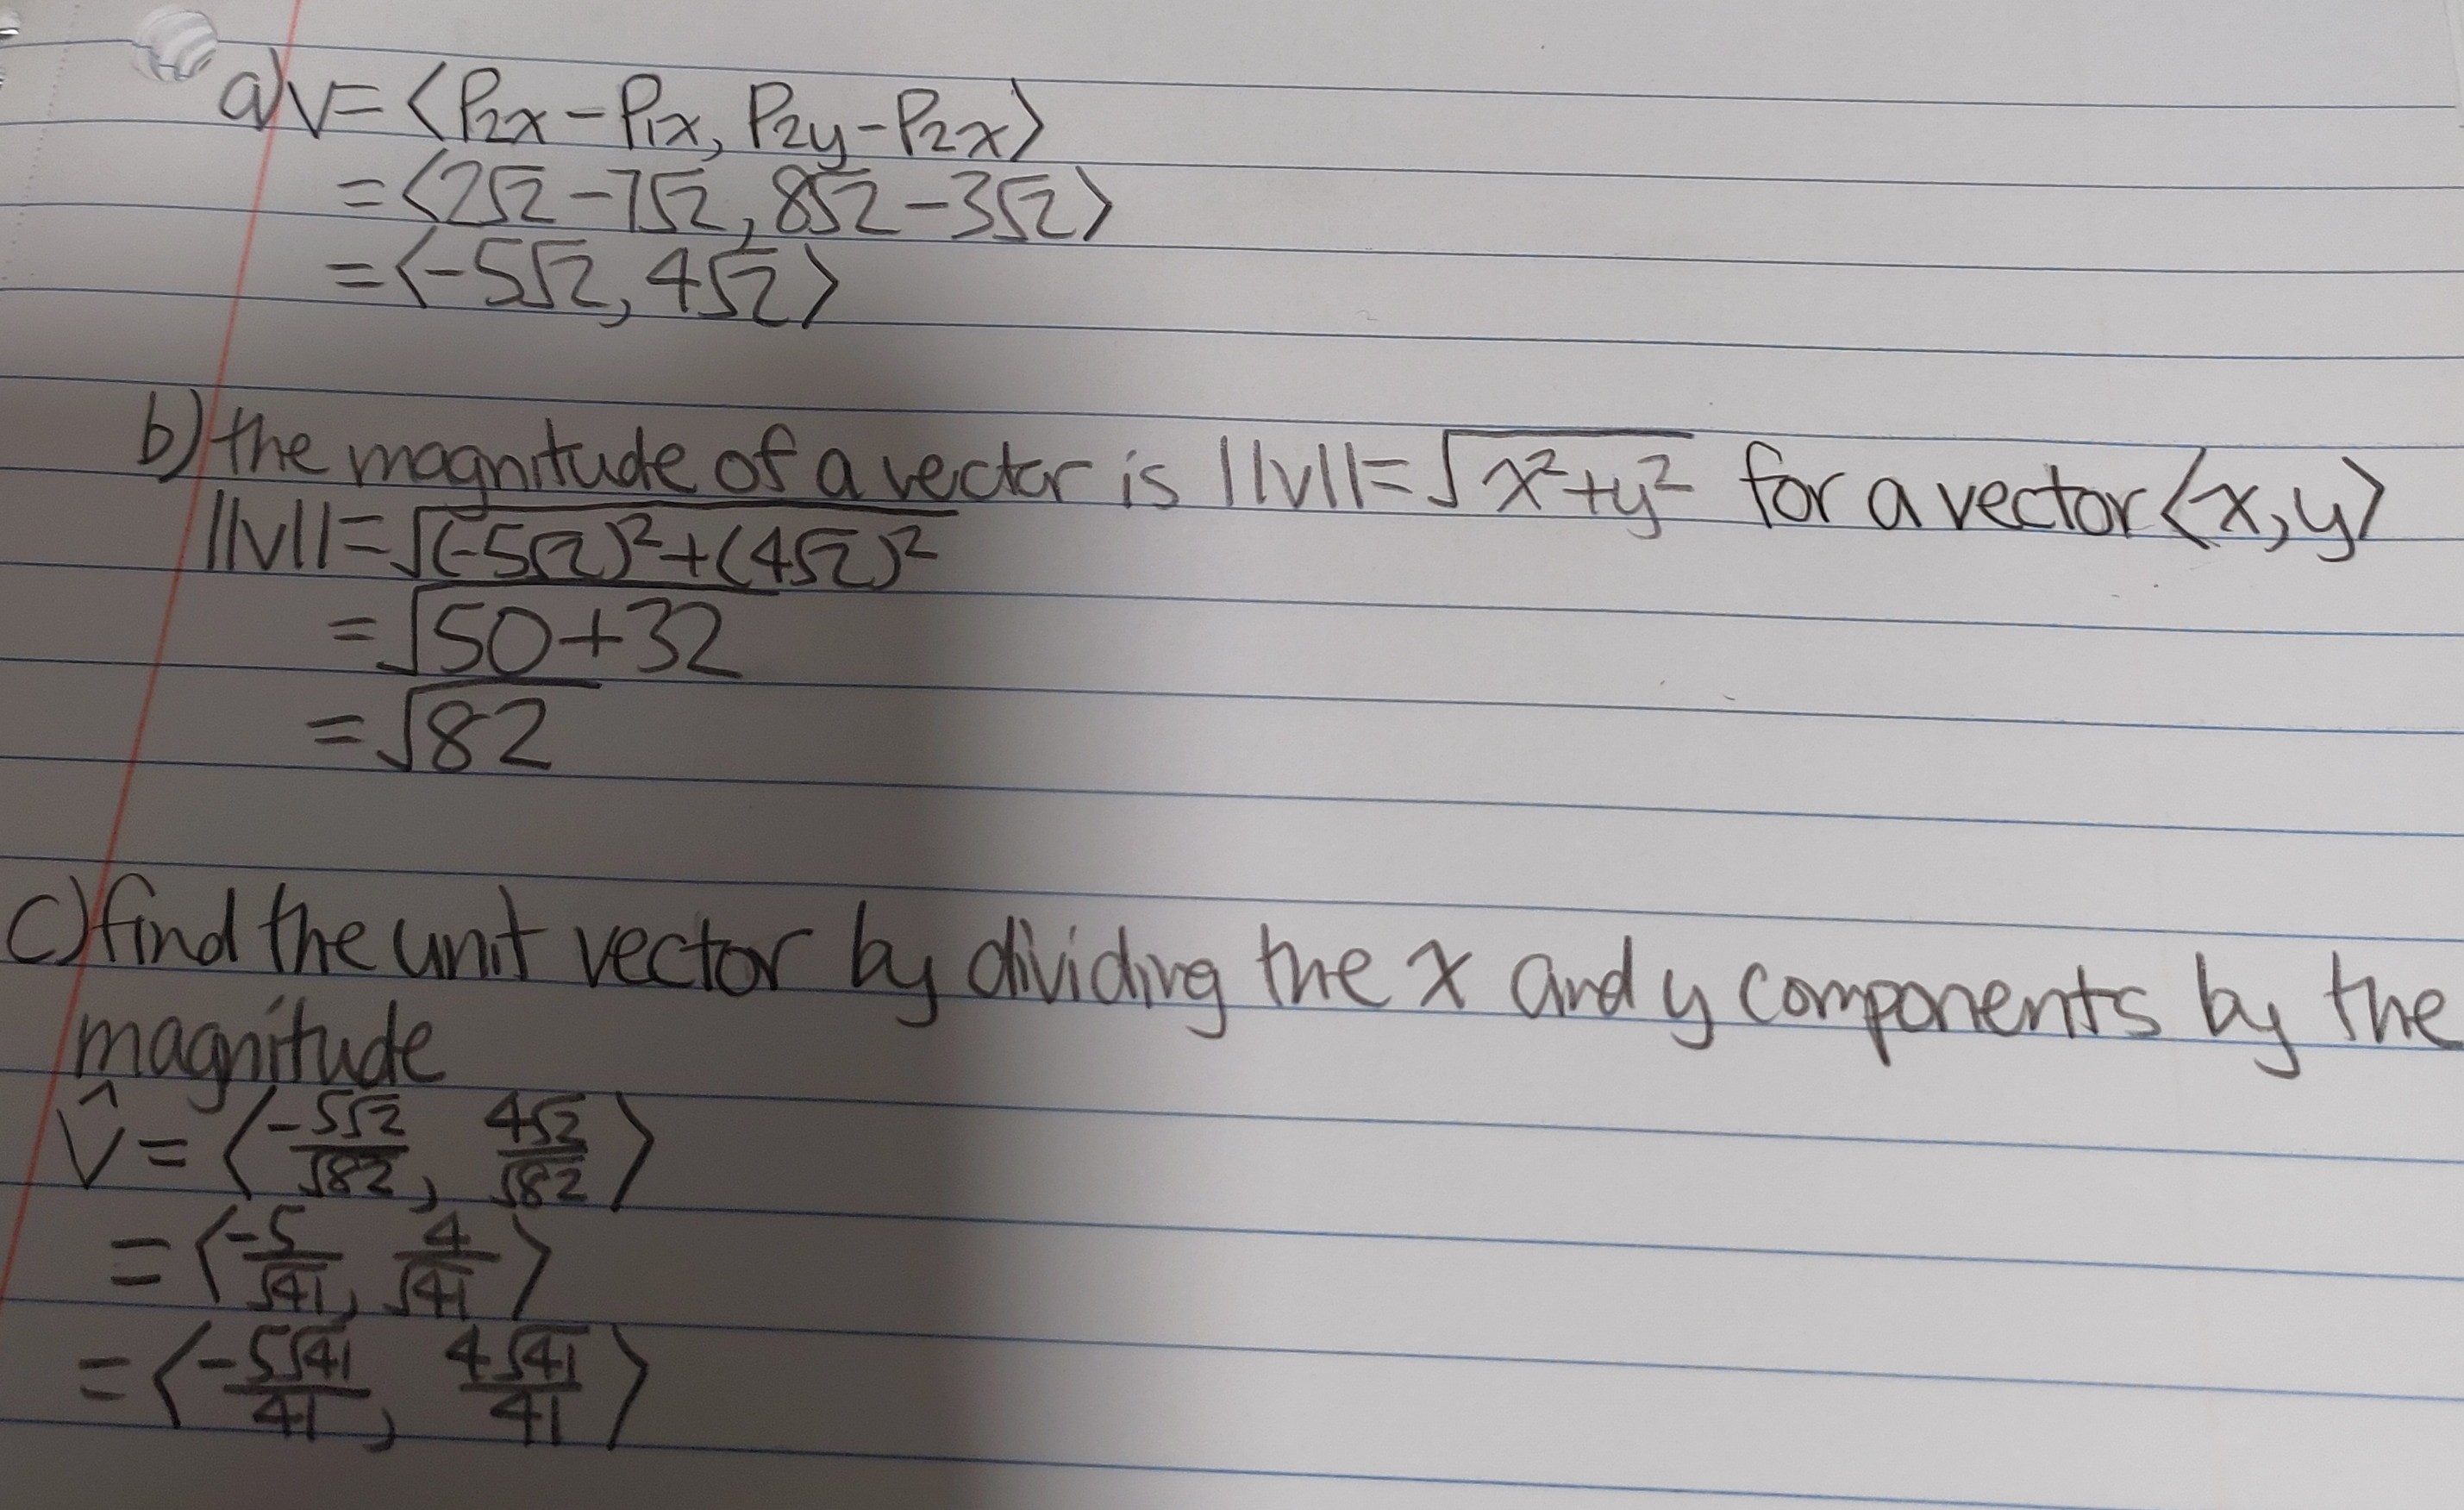 a) v = ⟨P₂x - P₁x, P₂y - P₂x⟩
= ⟨2√2 - 7√2, 8√2 - 3√2⟩
= ⟨-5√2, 4√2⟩
b) the magnitude of a vector is ||v|| = √(x² + y²) for a vector ⟨x, y⟩
||v|| = √((-5√2)² + (4√2)²)
= √(50 + 32)
= √82
c) find the unit vector by dividing the x and y components by the
magnitude
v̂ = ⟨-5√2/√82, 4√2/√82⟩
= ⟨-5/√41, 4/√41⟩
= ⟨-5√41/41, 4√41/41⟩